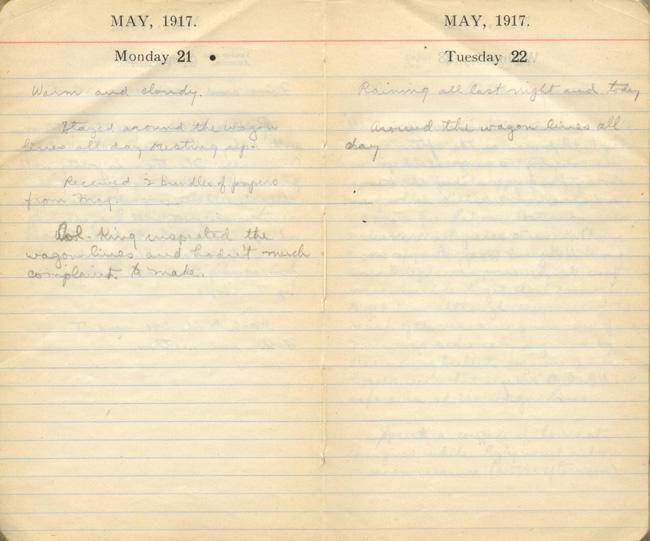 MAY, 1917.
Monday 21
Warm and cloudy.
Stayed around the wagon
lines all day resting up.
Received 2 bundles of papers
from
Col. King inspected the
wagon lines and hadn't much
complaint to make.
MAY, 1917.
Tuesday 22
Raining all last night and today
Around the wagon lines all
day